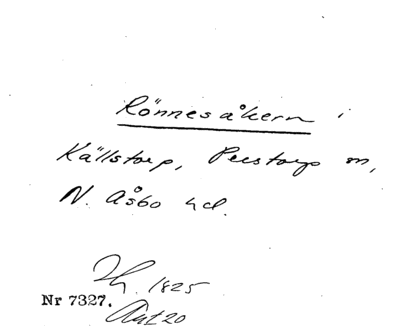 Rönnesåkern i
Källstorp, Perstorps sn,
N. Åsbo hd.
Lh. 1825
Nr 7327.
Akt 20